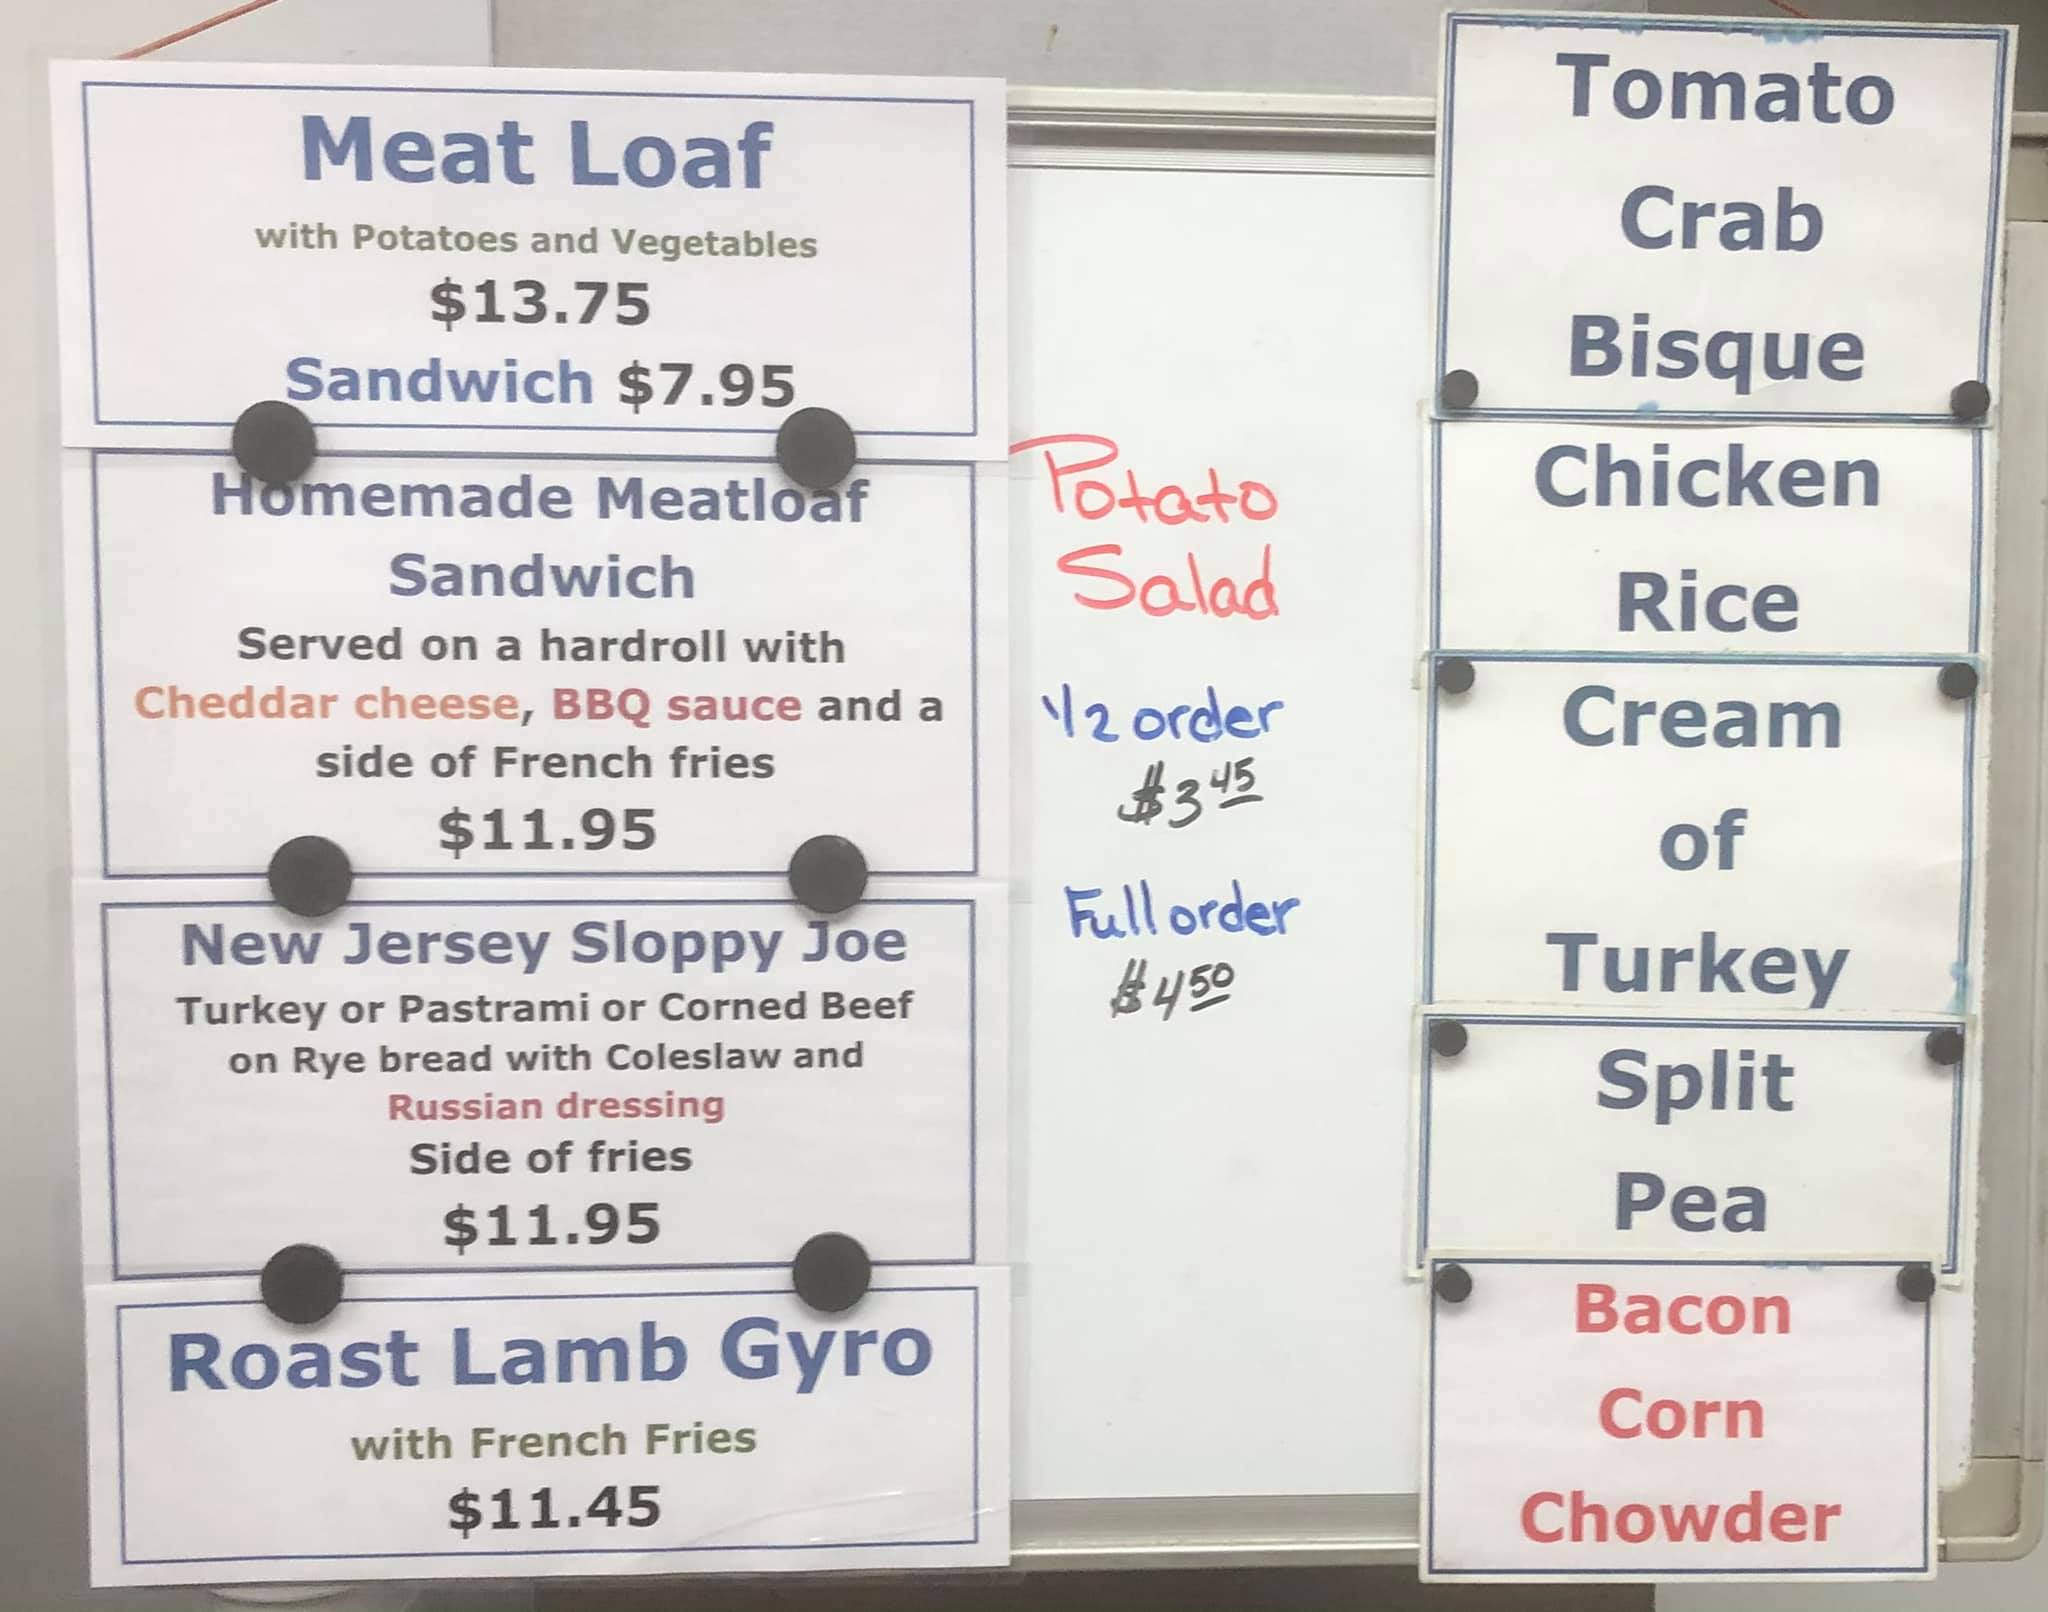 Meat Loaf
with Potatoes and Vegetables
$13.75
Sandwich $7.95
Homemade Meatloaf
Sandwich
Served on a hardroll with
Cheddar cheese, BBQ sauce and a
side of French fries
$11.95
New Jersey Sloppy Joe
Turkey or Pastrami or Corned Beef
on Rye bread with Coleslaw and
Russian dressing
Side of fries
$11.95
Roast Lamb Gyro
with French Fries
$11.45
Potato
Salad
1/2 order
$3 45
Full order
$4 50
Tomato
Crab
Bisque
Chicken
Rice
Cream
of
Turkey
Split
Pea
Bacon
Corn
Chowder